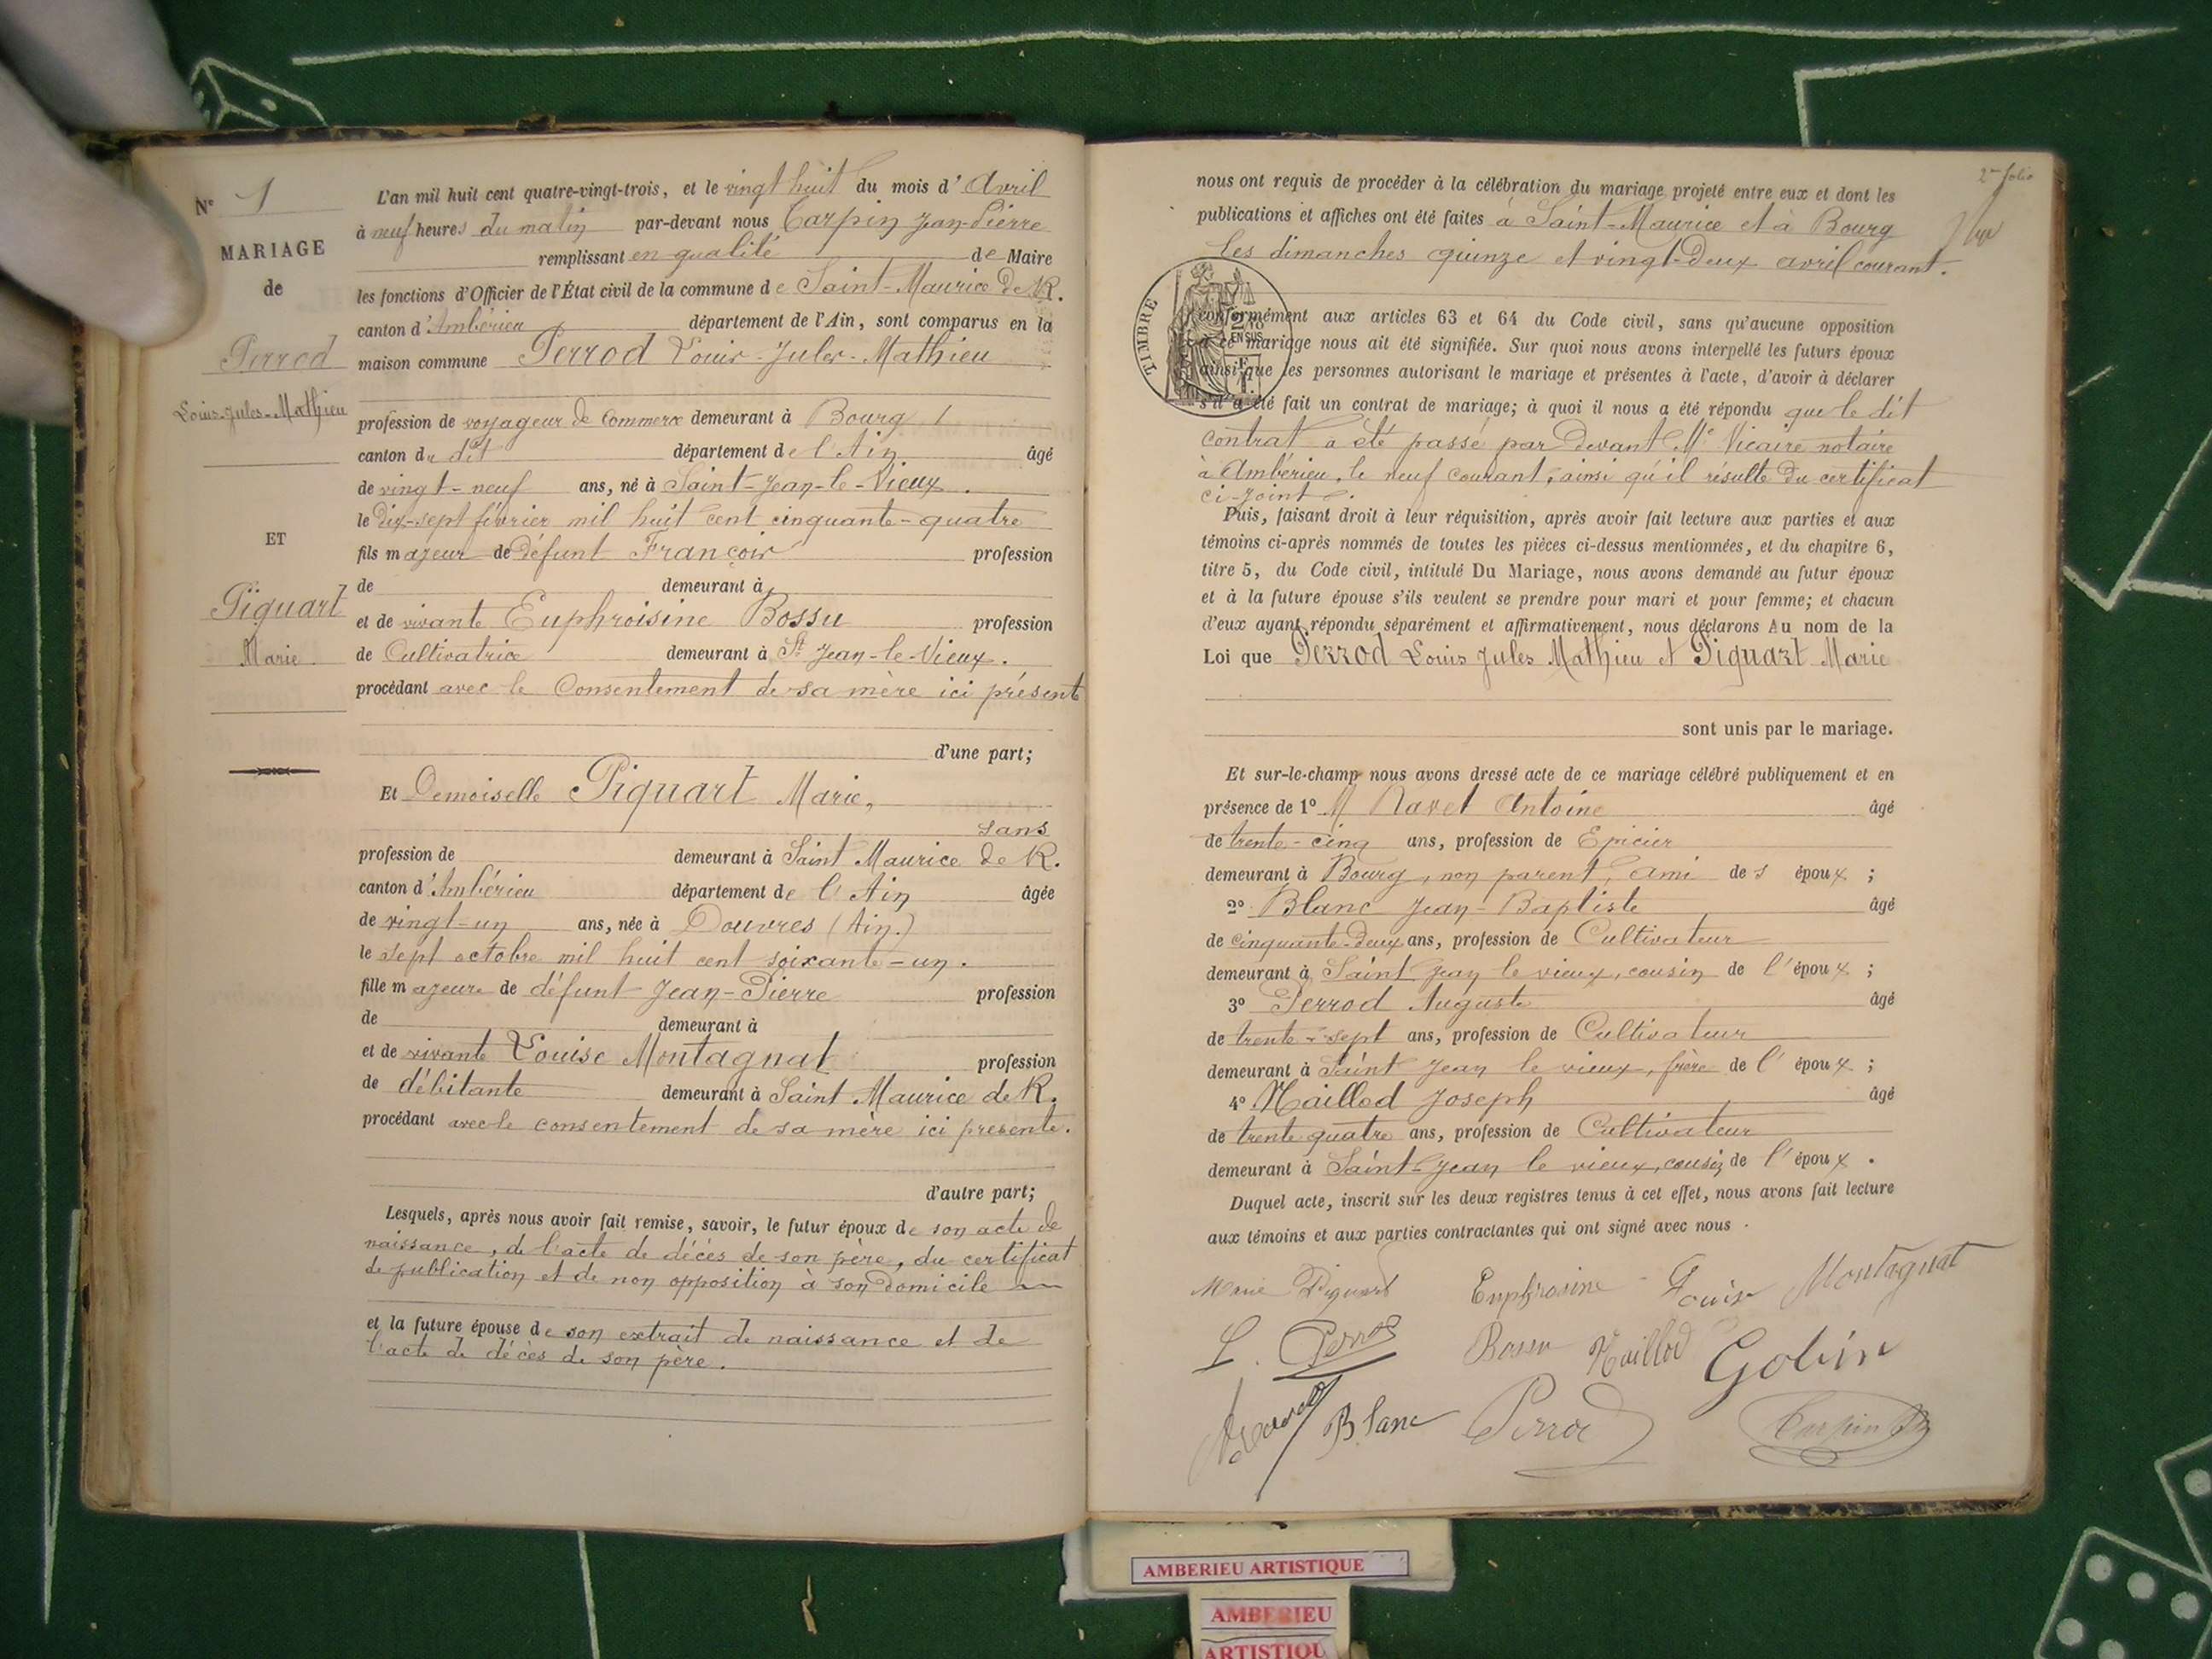 N° 1
MARIAGE
de
Perrod
Louis-Jules-Mathieu
ET
Piquart
Marie
L'an mil huit cent quatre-vingt-trois, et le vingt huit du mois d'Avril
à neuf heures du matin par-devant nous Carpin Jean-Pierre
remplissant en qualité de Maire
les fonctions d'Officier de l'État civil de la commune de Saint-Maurice de R.
canton d'Ambérieu département de l'Ain, sont comparus en la
maison commune Perrod Louis-Jules-Mathieu
profession de voyageur de Commerce demeurant à Bourg
canton du dit département de l'Ain âgé
de vingt-neuf ans, né à Saint-Jean-le-Vieux.
le dix-sept février mil huit cent cinquante-quatre
fils majeur de défunt François profession
de demeurant à
et de vivante Euphroisine Bossu profession
de Cultivatrice demeurant à St Jean-le-Vieux.
procédant avec le Consentement de sa mère ici présent
d'une part;
Et Demoiselle Piquart Marie,
sans
profession de demeurant à Saint Maurice de R.
canton d'Ambérieu département de l'Ain âgée
de vingt-un ans, née à Douvres (Ain.)
le sept octobre mil huit cent soixante-un.
fille majeure de défunt Jean-Pierre profession
de demeurant à
et de vivante Louise Montagnat profession
de débitante demeurant à Saint Maurice de R.
procédant avec le consentement de sa mère ici présente.
d'autre part;
Lesquels, après nous avoir fait remise, savoir, le futur époux de son acte de
naissance, de l'acte de décès de son père, du certificat
de publication et de non opposition à son domicile
et la future épouse de son extrait de naissance et de
l'acte de décès de son père.
2me folio
nous ont requis de procéder à la célébration du mariage projeté entre eux et dont les
publications et affiches ont été faites à Saint-Maurice et à Bourg
les dimanches quinze et vingt-deux avril courant.
TIMBRE
conformément aux articles 63 et 64 du Code civil, sans qu'aucune opposition
à ce mariage nous ait été signifiée. Sur quoi nous avons interpellé les futurs époux
ainsi que les personnes autorisant le mariage et présentes à l'acte, d'avoir à déclarer
s'il a été fait un contrat de mariage; à quoi il nous a été répondu que le dit
contrat a été passé par devant Me Vicaire notaire
à Ambérieu, le neuf courant, ainsi qu'il résulte du certificat
ci-joint.
Puis, faisant droit à leur réquisition, après avoir fait lecture aux parties et aux
témoins ci-après nommés de toutes les pièces ci-dessus mentionnées, et du chapitre 6,
titre 5, du Code civil, intitulé Du Mariage, nous avons demandé au futur époux
et à la future épouse s'ils veulent se prendre pour mari et pour femme; et chacun
d'eux ayant répondu séparément et affirmativement, nous déclarons Au nom de la
Loi que Perrod Louis Jules Mathieu et Piquart Marie
sont unis par le mariage.
Et sur-le-champ nous avons dressé acte de ce mariage célébré publiquement et en
présence de 1° M Ravet Antoine âgé
de trente-cinq ans, profession de Epicier
demeurant à Bourg, non parent, ami des époux ;
2° Blanc Jean-Baptiste âgé
de cinquante-deux ans, profession de Cultivateur
demeurant à Saint Jean le vieux, cousin de l'époux ;
3° Perrod Auguste âgé
de trente-sept ans, profession de Cultivateur
demeurant à Saint Jean le vieux, frère de l'époux ;
4° Maillod Joseph âgé
de trente quatre ans, profession de Cultivateur
demeurant à Saint-Jean le vieux, cousin de l'époux .
Duquel acte, inscrit sur les deux registres tenus à cet effet, nous avons fait lecture
aux témoins et aux parties contractantes qui ont signé avec nous .
Marie Piquart Euphrosine Louise Montagnat
L. Perrod Bossu Maillod Gobin
Blanc Perrod Carpin
AMBERIEU ARTISTIQUE
AMBERIEU
ARTISTIQU